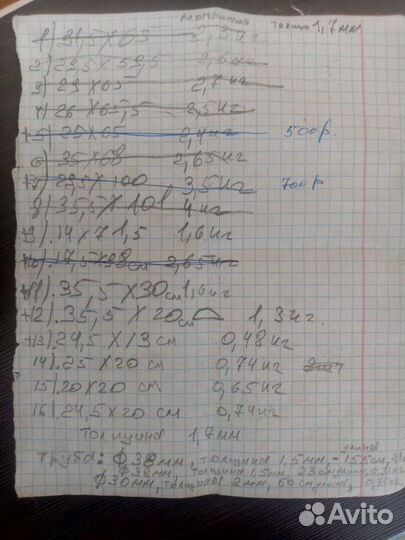 толщина 1,7 мм
1) 31,5 X 65 2,3 кг
2) 29,5 X 59,5 2,6 кг
3) 29 X 65 2,7 кг
4) 26 X 65,5 2,5 кг
+5) 25 X 65 2,4 кг 500р.
6) 35 X 68 2,65 кг
+7) 29,5 X 100 3,5 кг 700р
8) 35,5 X 101 4 кг
9) 14 X 71,5 1,6 кг
+10) 17,5 X 98 см 2,65 кг
+11) 35,5 X 30 см 1,6 кг
+12) 35,5 X 20 см 1,3 кг.
+13) 24,5 X 13 см 0,48 кг
14) 25 X 20 см 0,74 кг
15) 20 X 20 см 0,65 кг
16) 24,5 X 20 см 0,74 кг
толщина 1,7 мм
длина
труба: Ф38мм, толщина 1,5мм, - 155см,
Ф38мм, толщина 1,5мм, 23см
Ф30мм, толщина 2мм, 60см длина,
Avito